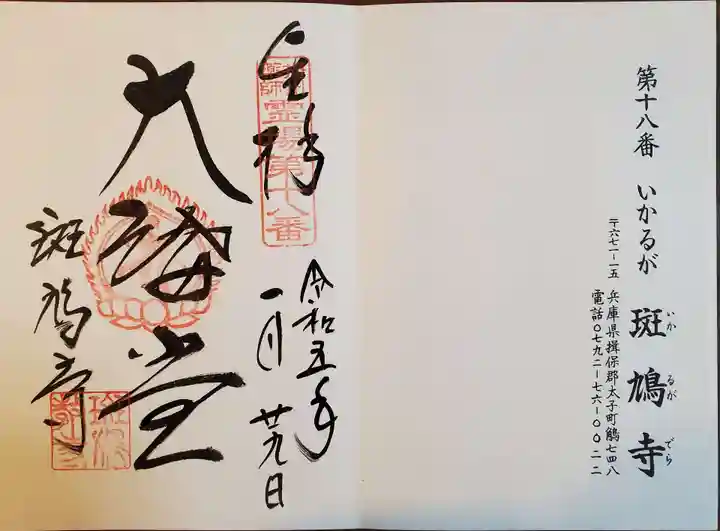 第十八番　いかるが　斑鳩寺
いかるがでら
〒六七一ー一五　兵庫県揖保郡太子町鵤七四八
電話〇七九二ー七六ー〇〇二二
奉拝
薬師霊場第十八番
令和五年
一月廿九日
大講堂
斑鳩寺